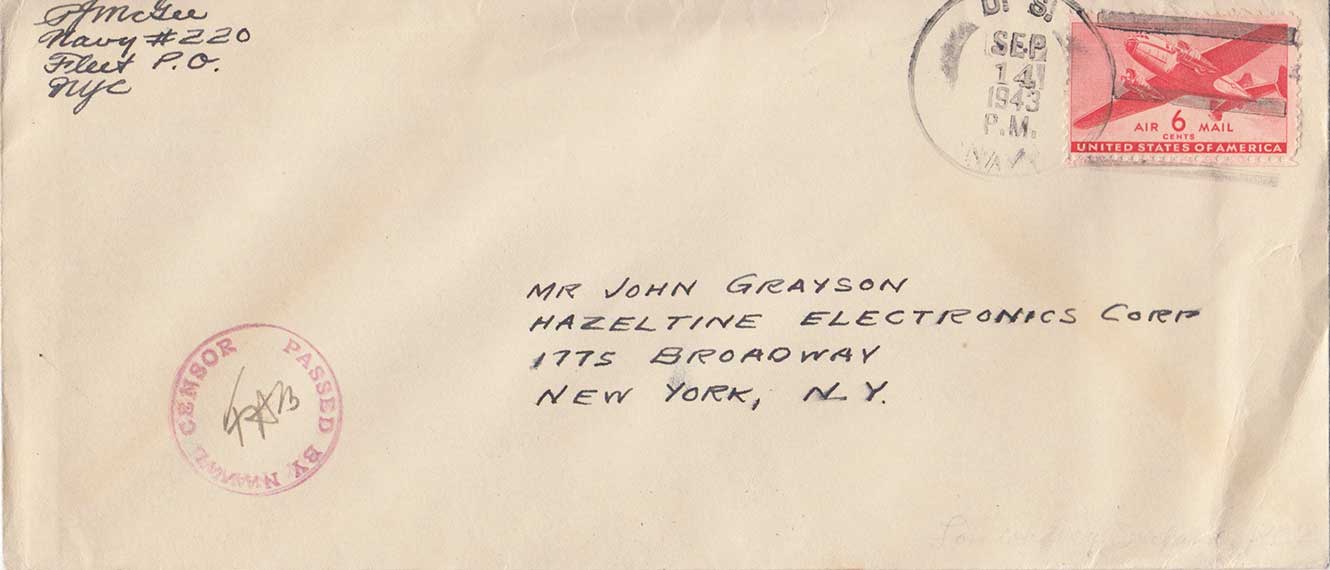 McGee
Navy #220
Fleet P.O.
NYC
U. S.
SEP
14
1943
P.M.
NAVY
AIR 6 MAIL
CENTS
UNITED STATES OF AMERICA
MR JOHN GRAYSON
HAZELTINE ELECTRONICS CORP
1775 BROADWAY
NEW YORK, N.Y.
PASSED BY CENSOR